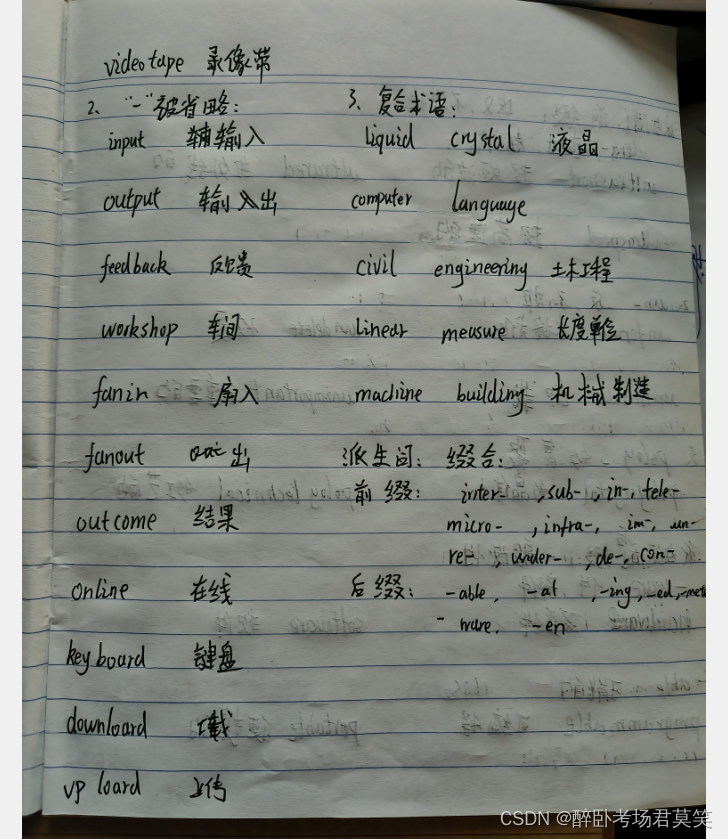 videotape 录像带
2、"-"被省略:
input 输入
output 输入出
feedback 反馈
workshop 车间
fanin 扇入
fanout out 出
outcome 结果
online 在线
keyboard 键盘
downloard 下载
up loard 上传
3、复合术语:
liquid crystal 液晶
computer language
civil engineering 土木工程
linear measure 长度单位
machine building 机械制造
派生词: 缀合:
前缀: inter-, sub-, in-, tele-
micro-, infra-, im-, un-
re-, under-, de-, con-
后缀: -able, -al, -ing, -ed, -mete
-ware, -en
CSDN @醉卧考场君莫笑